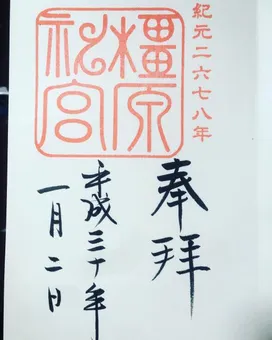 紀元二六七八年
橿原神宮
奉拝
平成三十年
一月二日